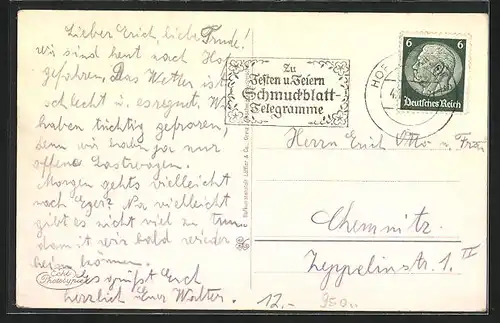 Lieber Erich, liebe Trude!
wir sind heut nach Hof
gefahren. Das Wetter ist
schlecht u. es regnet. Wir
haben tüchtig gefroren,
denn wir haben gar nur
offene Lastwagen.
Morgen gehts vielleicht
nach Eger? Na vielleicht
gibt es nicht viel zu tun
damit wir bald wieder
heim können.
es grüßt Euch
herzlich Euer Walter.
Echte Photographie
Zu
Festen u. Feiern
Schmuckblatt-
Telegramme
HOF
6 6
Deutsches Reich
Herrn Erich Otto u. Frau
Chemnitz.
Zeppelinstr. 1. II
12.-